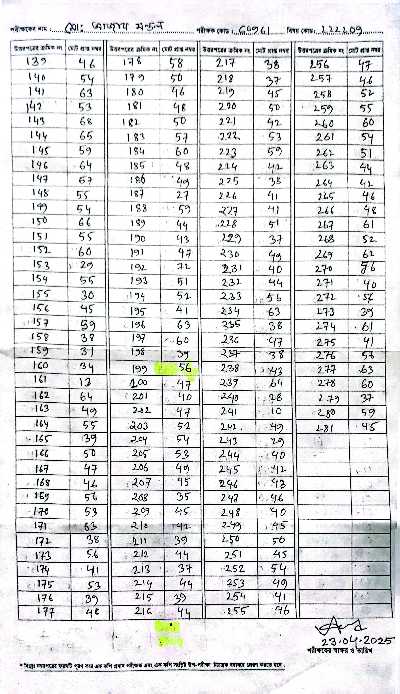 পরীক্ষকের নাম : মো: আজাদ মন্ডল পরীক্ষক কোড : 60961 বিষয় কোড : 222209
উত্তরপত্রের ক্রমিক নং মোট প্রাপ্ত নম্বর উত্তরপত্রের ক্রমিক নং মোট প্রাপ্ত নম্বর উত্তরপত্রের ক্রমিক নং মোট প্রাপ্ত নম্বর উত্তরপত্রের ক্রমিক নং মোট প্রাপ্ত নম্বর
139 46 178 58 217 38 256 47
140 54 179 50 218 37 257 46
141 63 180 46 219 45 258 52
142 53 181 48 220 50 259 55
143 68 182 50 221 42 260 60
144 65 183 57 222 53 261 54
145 59 184 60 223 59 262 51
146 64 185 48 224 42 263 44
147 67 186 49 225 38 264 42
148 55 187 27 226 41 265 46
149 54 188 59 227 41 266 48
150 66 189 44 228 51 267 61
151 55 190 43 229 37 268 52
152 60 191 47 230 49 269 62
153 29 192 72 231 40 270 56
154 55 193 51 232 44 271 40
155 30 194 52 233 56 272 56
156 45 195 41 234 63 273 39
157 59 196 63 235 38 274 61
158 38 197 60 236 47 275 41
159 31 198 39 237 38 276 57
160 34 199 56 238 43 277 63
161 13 200 47 239 64 278 60
162 64 201 40 240 28 279 37
163 49 202 47 241 10 280 59
164 55 203 52 242 49 281 45
165 39 204 54 243 29
166 50 205 53 244 40
167 47 206 49 245 42
168 46 207 45 246 43
169 56 208 35 247 46
170 53 209 45 248 40
171 63 210 42 249 45
172 38 211 39 250 50
173 56 212 44 251 45
174 41 213 37 252 54
175 53 214 44 253 49
176 39 215 39 254 41
177 48 216 44 255 46
23-04-2025
পরীক্ষকের স্বাক্ষর ও তারিখ